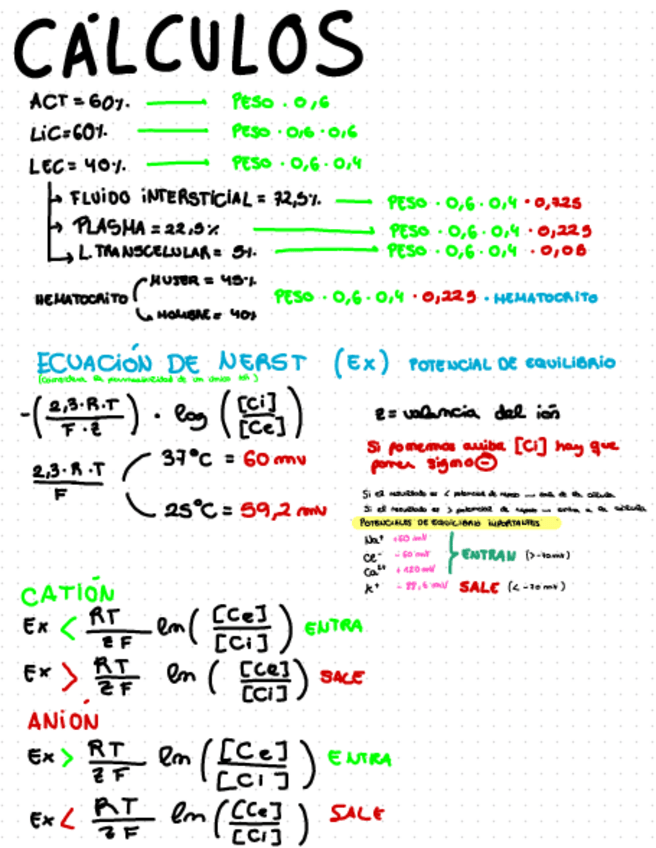 CÁLCULOS
ACT = 60%. → PESO · 0,6
LiC=60%. → PESO · 0,6 · 0,6
LEC = 40%. → PESO · 0,6 · 0,4
→ FLUIDO INTERSTICIAL = 72,5%. → PESO · 0,6 · 0,4 · 0,725
→ PLASMA = 22,5%. → PESO · 0,6 · 0,4 · 0,225
→ L. TRANSCELULAR = 5%. → PESO · 0,6 · 0,4 · 0,05
MUJER = 45%
HEMATOCRITO PESO · 0,6 · 0,4 · 0,225 · HEMATOCRITO
HOMBRE = 40%
ECUACIÓN DE NERST (Ex) POTENCIAL DE EQUILIBRIO
(considera la permeabilidad de un único ión)
-(2,3·R·T / F·z) · log ([Ci] / [Ce]) z = valencia del ión
Si ponemos arriba [Ci] hay que
poner signo ⊖
2,3·R·T / F
37°C = 60 mv
25°C = 59,2 mv
Si el resultado es < potencial de reposo → sale de la célula
Si el resultado es > potencial de reposo → entra a la célula
POTENCIALES DE EQUILIBRIO IMPORTANTES
Na⁺ +60 mV
Ce⁻ -60 mV ENTRAN (>-70mV)
Ca²⁺ +120 mV
K⁺ SALE (<-70mV)
CATIÓN
Ex < RT / zF ln ([Ce] / [Ci]) ENTRA
Ex > RT / zF ln ([Ce] / [Ci]) SALE
ANIÓN
Ex > RT / zF ln ([Ce] / [Ci]) ENTRA
Ex < RT / zF ln ([Ce] / [Ci]) SALE